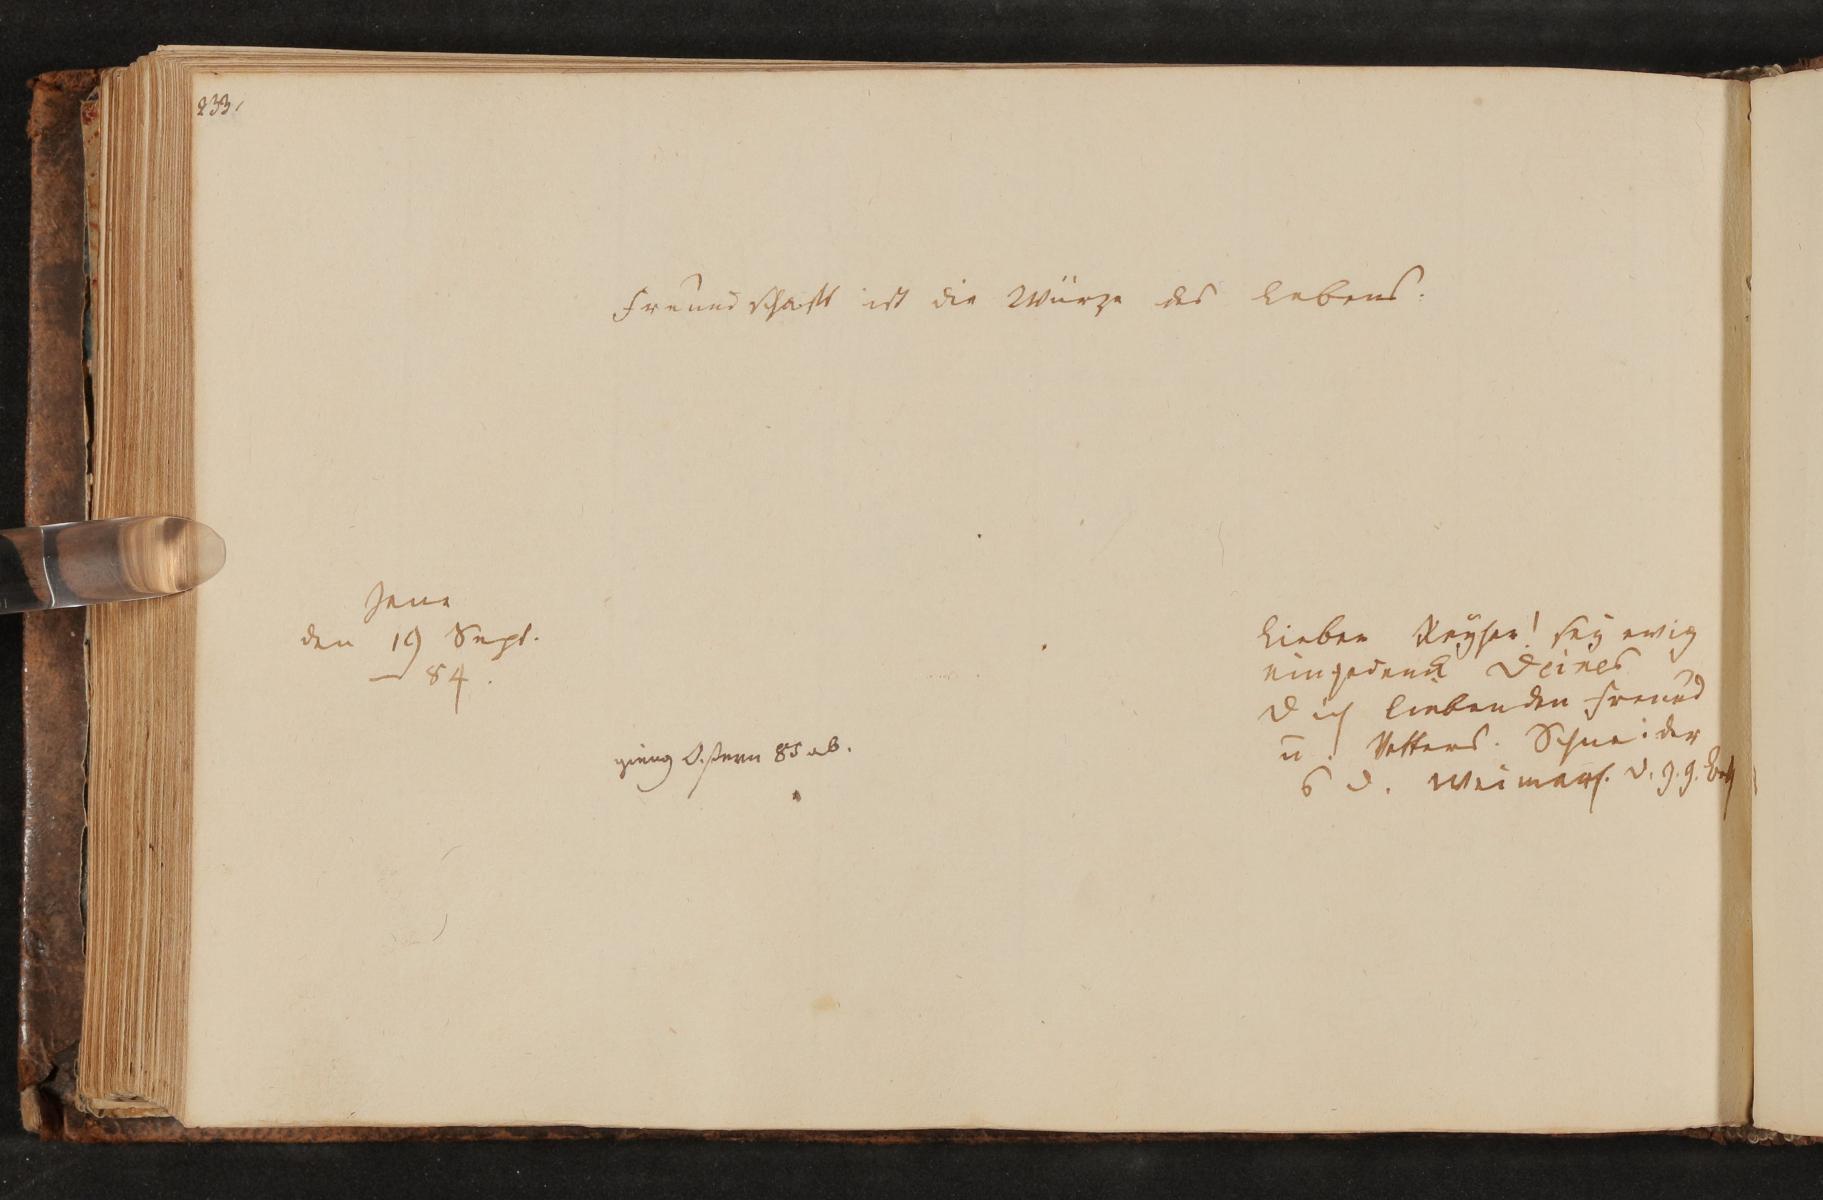 233.
Freundschafft ist die Würze des Lebens.
Jena
den 19 Sept.
— 84.
Lieber Keyser! sey ewig
eingedenck Deines
Dich liebenden Freund
u. Vetters. Schneider
d. Weimar.
gieng Ostern 85 ab.